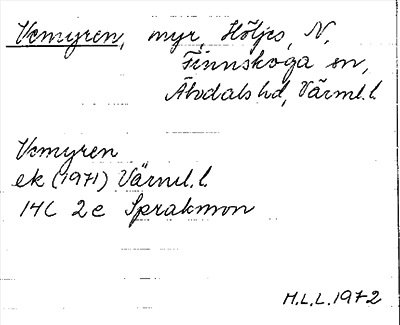 Vemyren, myr, Höljes, N,
Finnskoga sn,
Älvdals hd, Värml. l.
Vemyren
ek (1971) Värml. l.
14C 2e Sprakmon
H.L.L. 1972